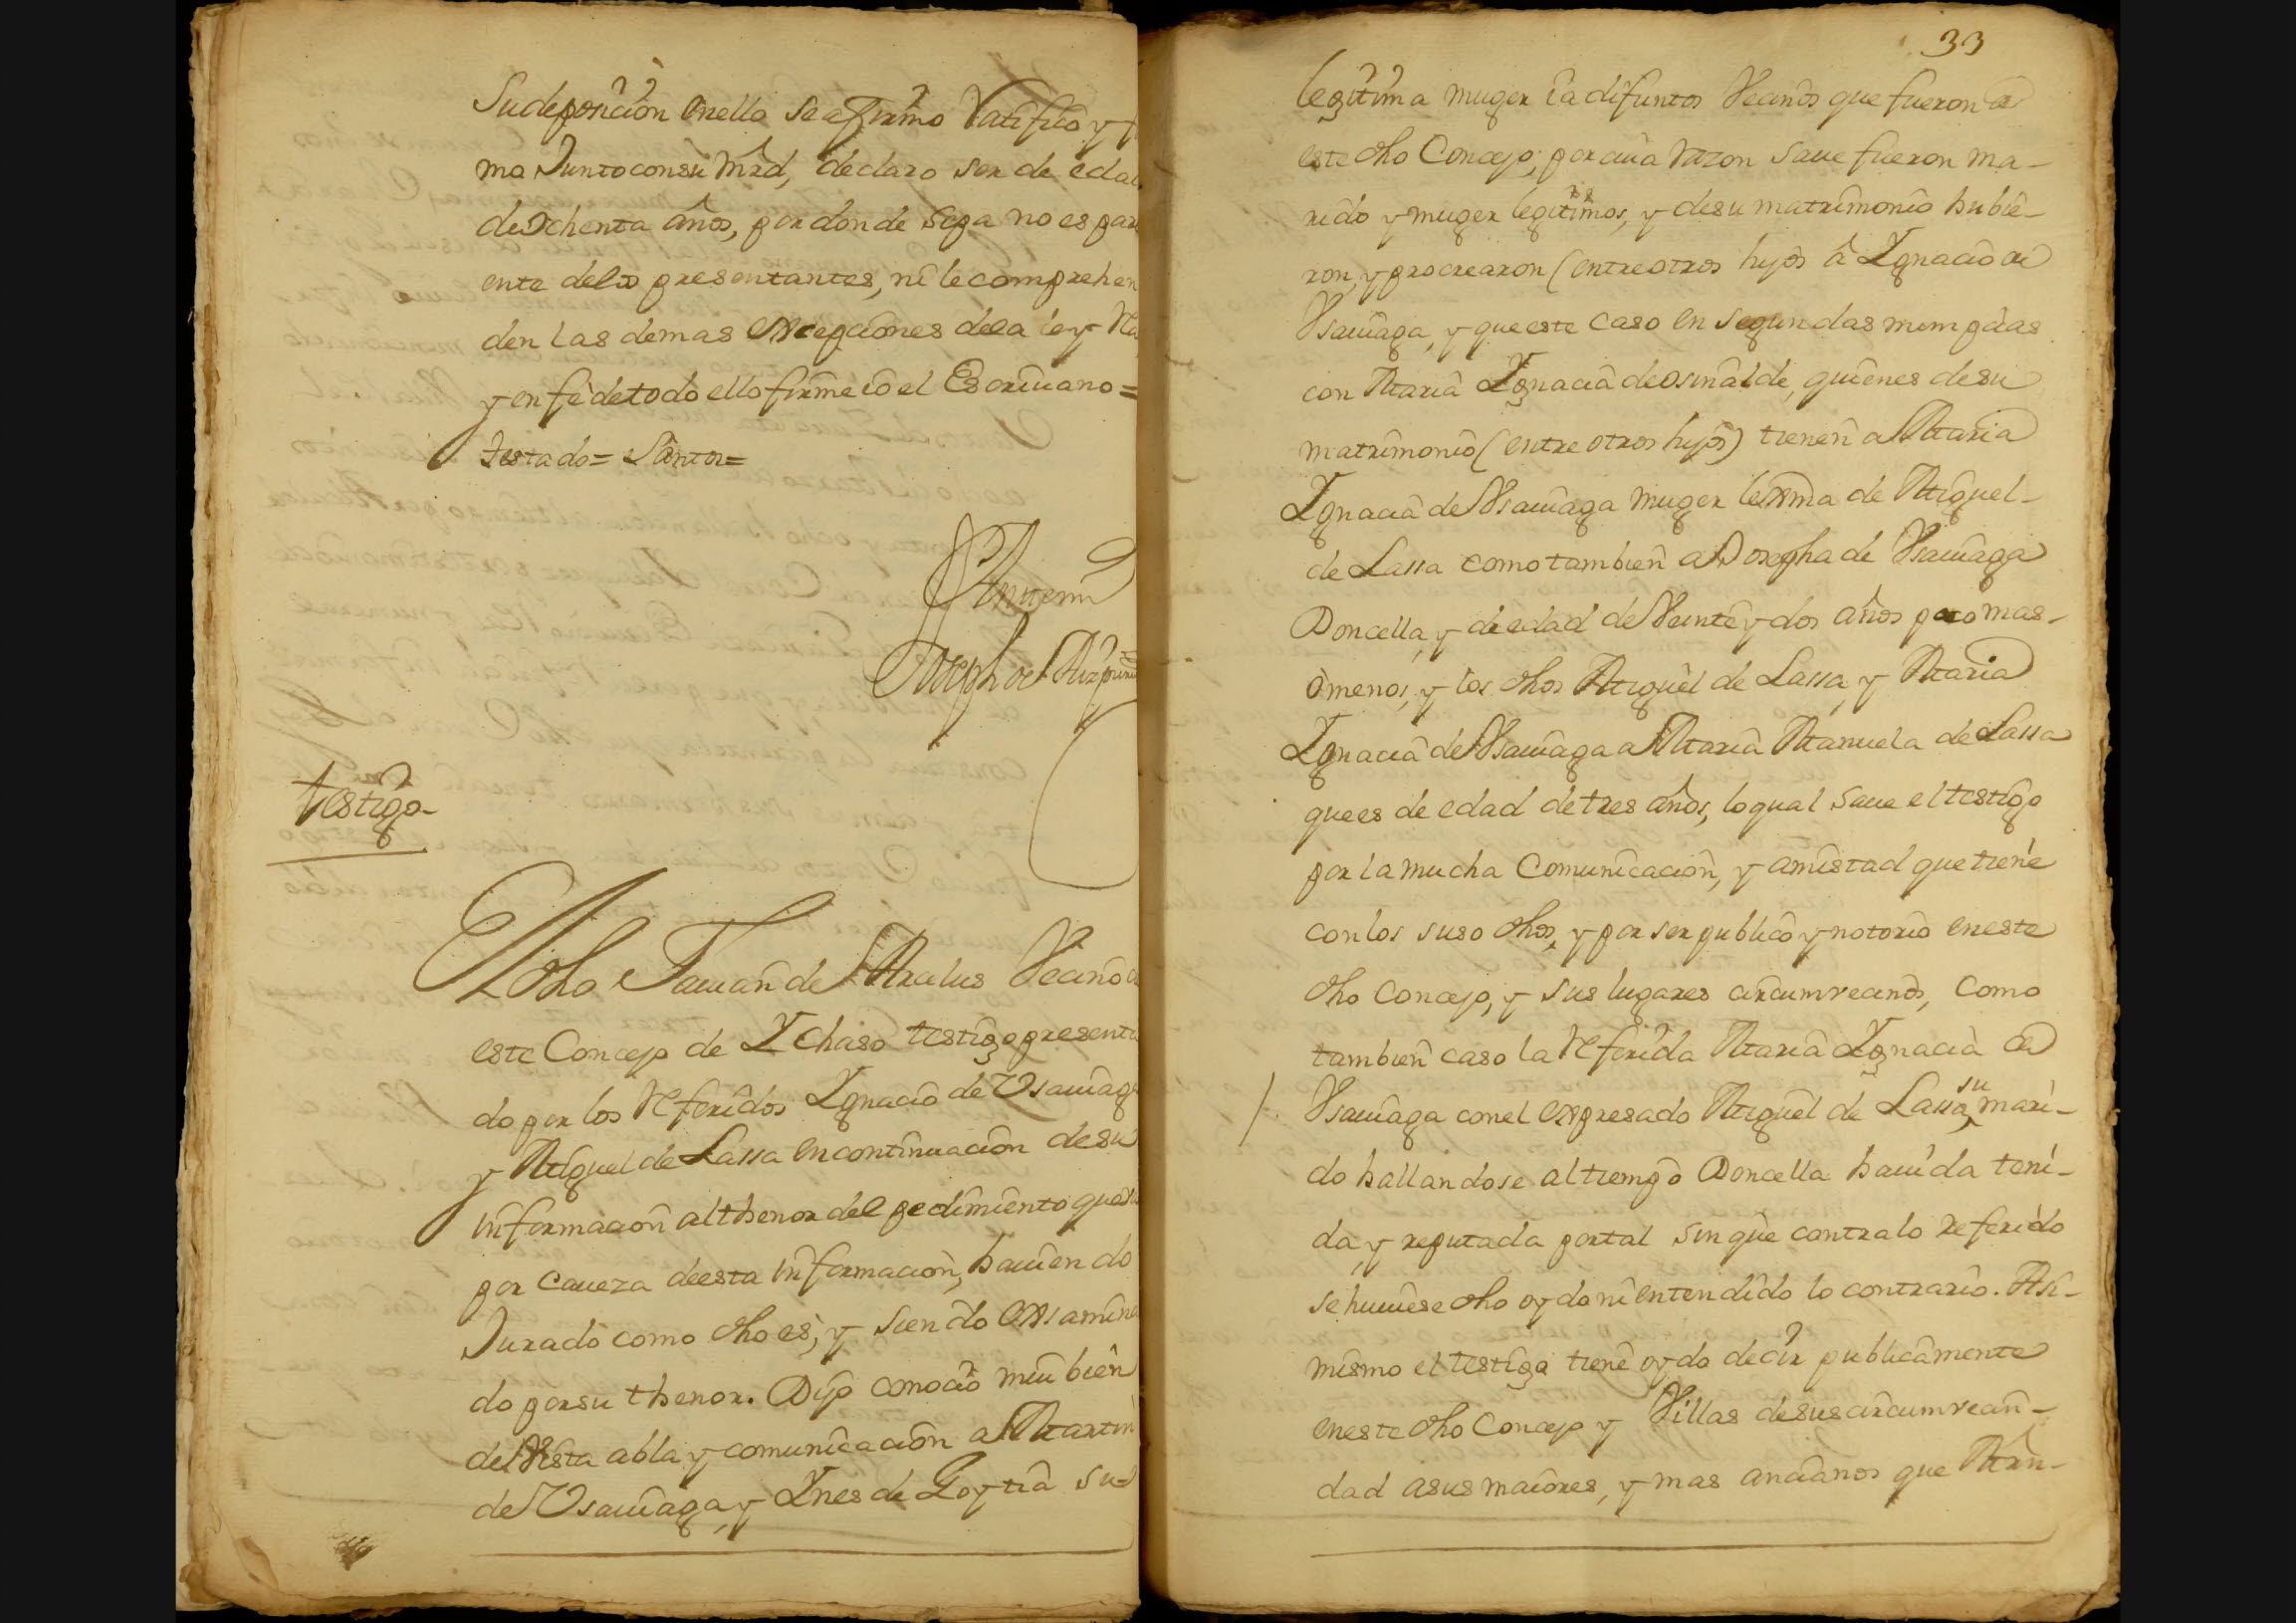 Sudeposición enello se afirmo Ratifico y f
ma Junto consu Mrd, declaro ser de edad
de Ochenta años, por donde sepa no es pari
ente delos presentantes, ni le comprehen
den las demas excepciones dela ley Rl
y en fe de todo ello firme io el Escrivano=
testado= Santos=
Ante mi
Joseph de Aizpuru
testigo-
El dho Juan de Aralus Vecino de
este Concejo de Ychaso testigo presenta
do por los Referidos Ygnacio de Usauiaga
y Miguel de Lassa en continuacion de su
informacion al thenor del pedimiento que va
por caueza de esta informacion, hauiendo
Jurado como dho es, y siendo exsamina
do por su thenor. Dijo conocio mui bien
de Vista abla y comunicacion a Martin
de Usauiaga, y Ynes de Goytia su
33
legitima muger ia difuntos Vecinos que fueron de
este dho Concejo, por cuia razon saue fueron ma-
rido y muger legitimos, y de su matrimonio hubie-
ron, y procrearon (entre otros hijos a Ygnacio de
Usauiaga, y que este caso en segundas numpcias
con Maria Ygnacia de osinalde, quienes de su
matrimonio (entre otros hijos) tienen a Maria
Ygnacia de Usauiaga muger lexma de Miguel-
de Lassa como tambien a Josepha de Usauiaga
Doncella, y de edad de Veinte y dos años poco mas-
ò menos, y los dhos Miguel de Lassa, y Maria
Ygnacia de Usauiaga a Maria Manuela de Lassa
que es de edad de tres años, lo qual saue el testigo
por la mucha Comunicacion, y amistad que tiene
con los suso dhos, y por ser publico y notorio en este
dho Concejo, y sus lugares circumvecinos, como
tambien caso la Referida Maria Ygnacia de
Usauiaga con el expresado Miguel de Lassa, su mari-
do hallandose al tiempo Doncella hauida teni-
da, y reputada por tal sin que contra lo referido
se huuiese dho oydo ni entendido lo contrario. Asi-
mismo el testigo tiene oydo decir publicamente
en este dho Concejo y Villas de sus circumvecin-
dad a sus maiores, y mas ancianos que Mrn-